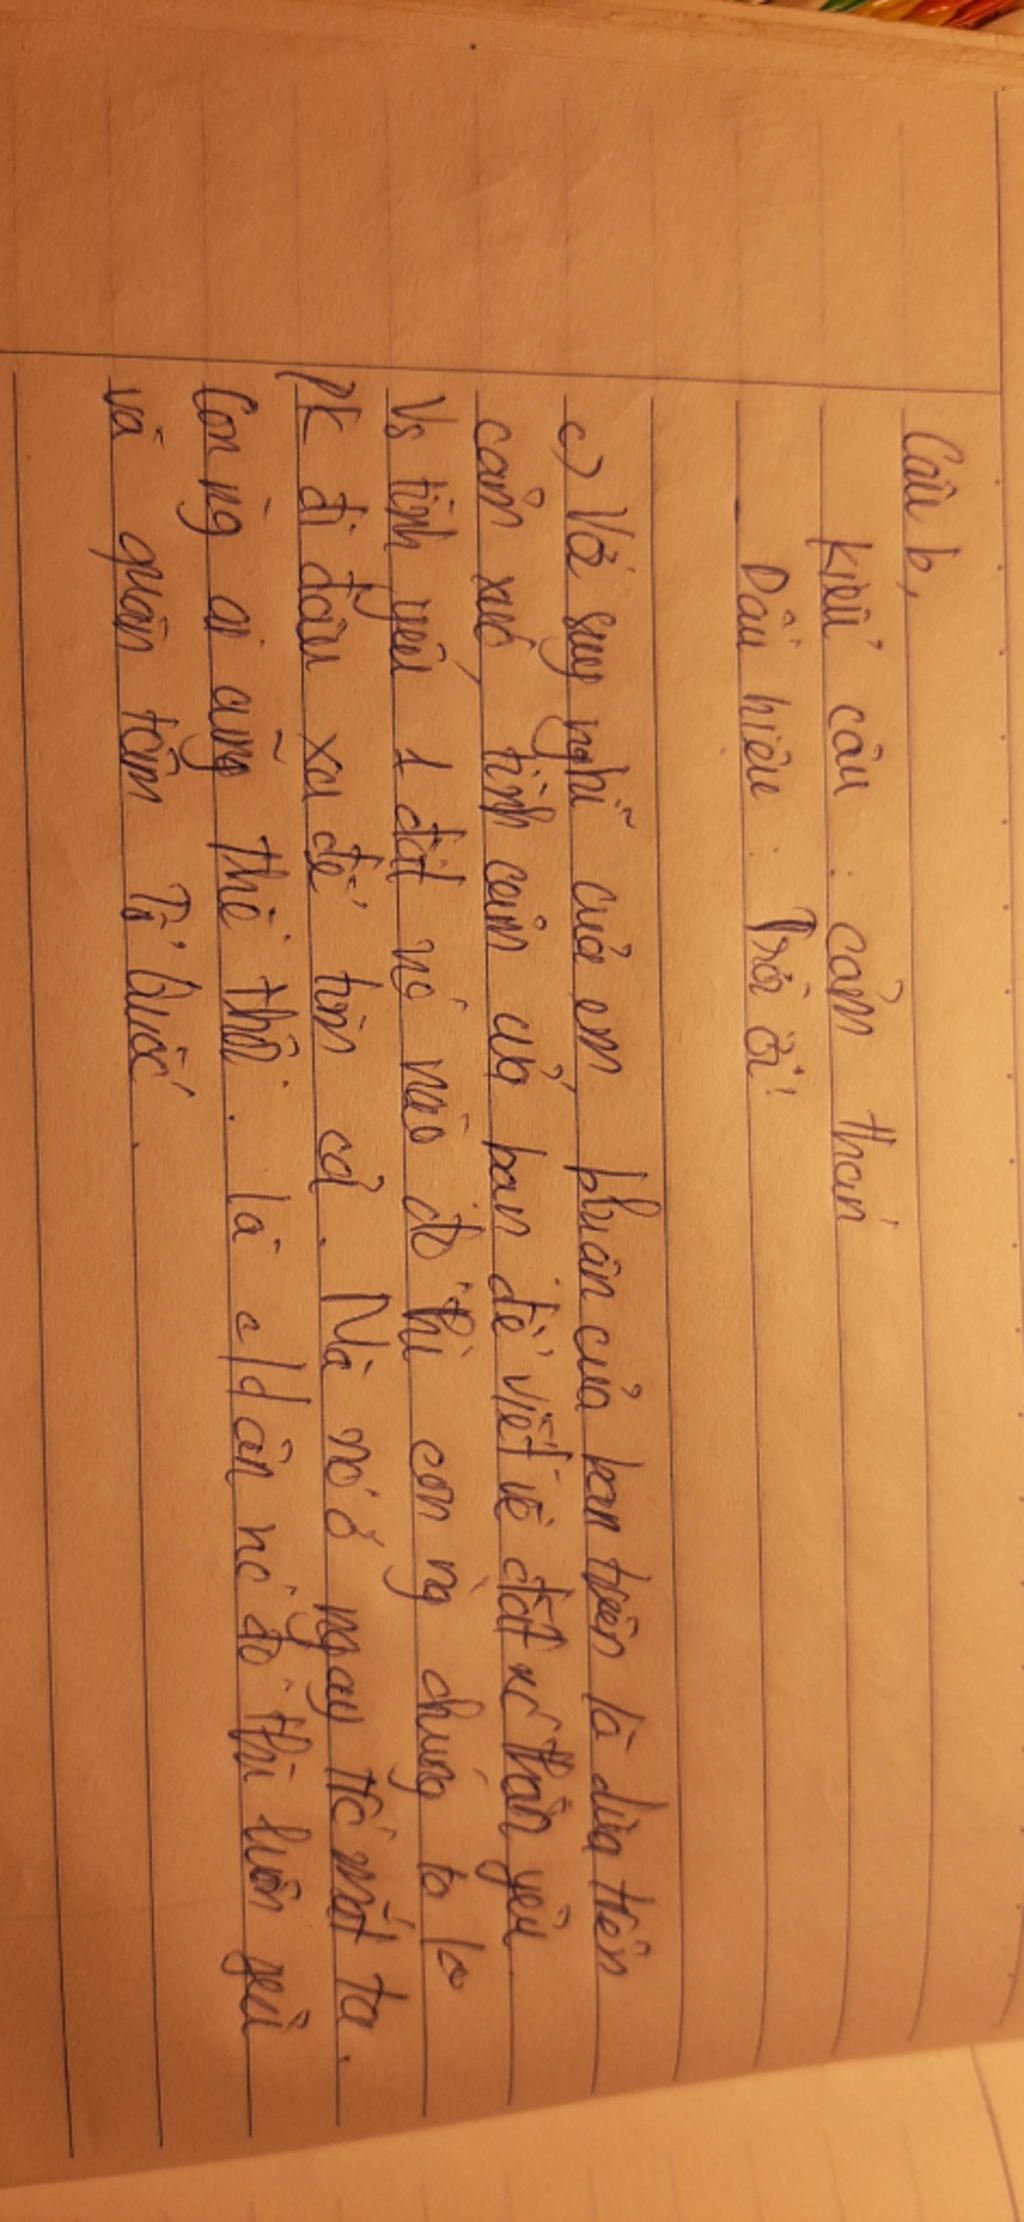 Câu b,
Kiểu câu : cảm thán
Dấu hiệu : Trời ơi!
c) Vở suy nghĩ của em, bluân của ban trên là dựa trên
cảm xúc, tình cảm của bạn để viết về đất nc thân yêu.
Vs tình yêu 1 đất nc nào đó thì con ng chúng ta
pk đi đâu xa để tìm cả. Mà nó ở ngay trc mắt ta.
Con ng ai cũng thế thôi. là dân nc đó thì luôn yêu
và quân tâm Tổ Quốc.